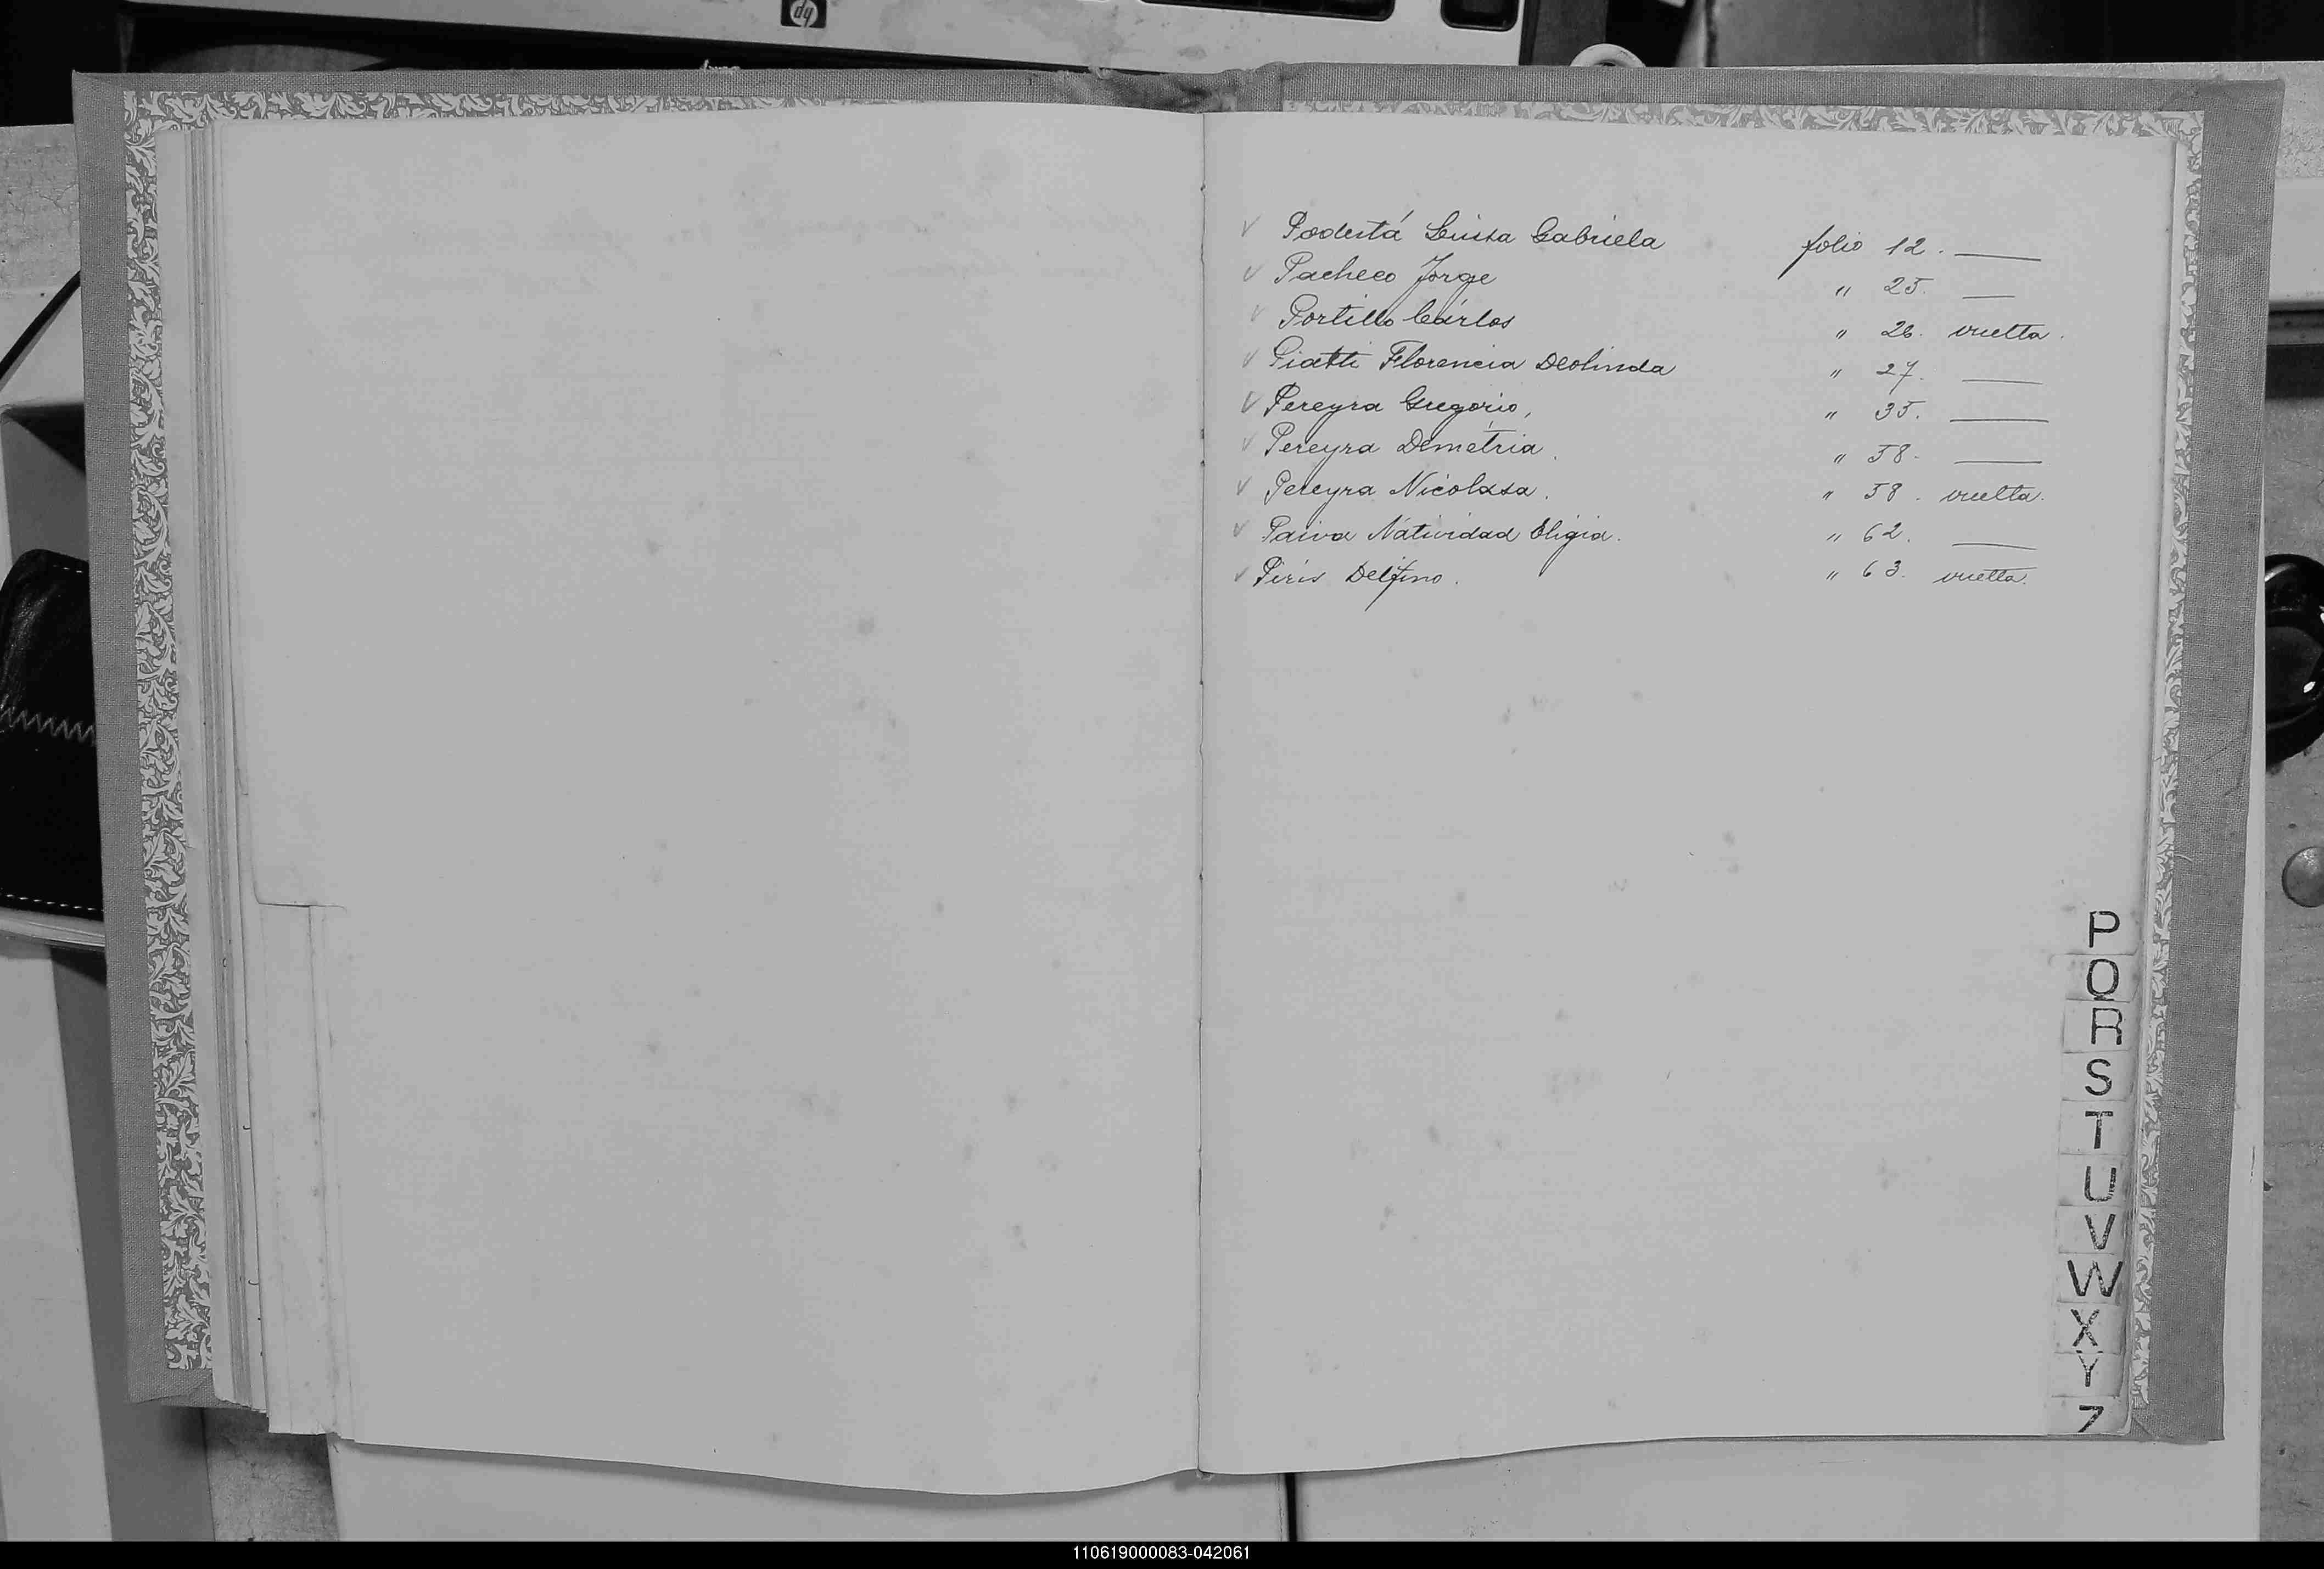 hp
✓ Podestá Luisa Gabriela folio 12. ——
✓ Pacheco Jorge " 25. ——
✓ Portillo Cárlos " 26. vuelta.
✓ Piatti Florencia Deolinda " 27. ——
✓ Pereyra Gregorio, " 35. ——
✓ Pereyra Demetria. " 58. ——
✓ Pereyra Nicolasa. " 58. vuelta.
✓ Paiva Natividad Eligia. " 62. ——
✓ Piris Delfino. " 63. vuelta.
P
Q
R
S
T
U
V
W
X
Y
Z
110619000083-042061